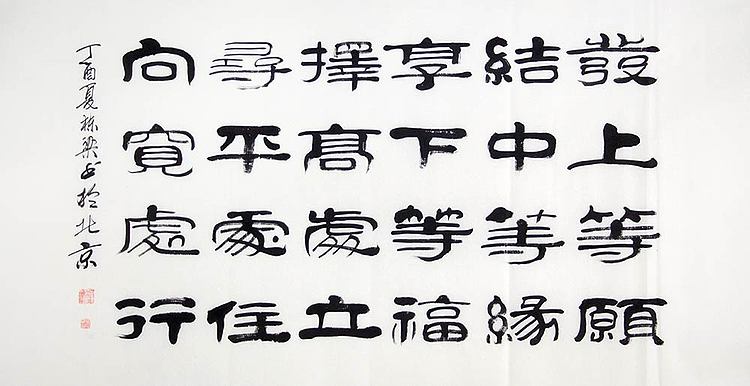 發上等願
結中等緣
享下等福
擇高處立
尋平處住
向寬處行
丁酉夏栋梁书於北京